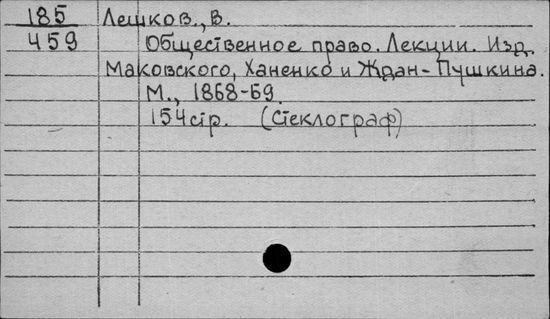 185 Лешков., В.
459 Общественное право. Лекции. Изд.
Маковского, Ханенко и Ждан-Пушкина.
М., 1868-69.
154 стр. (Стеклограф)